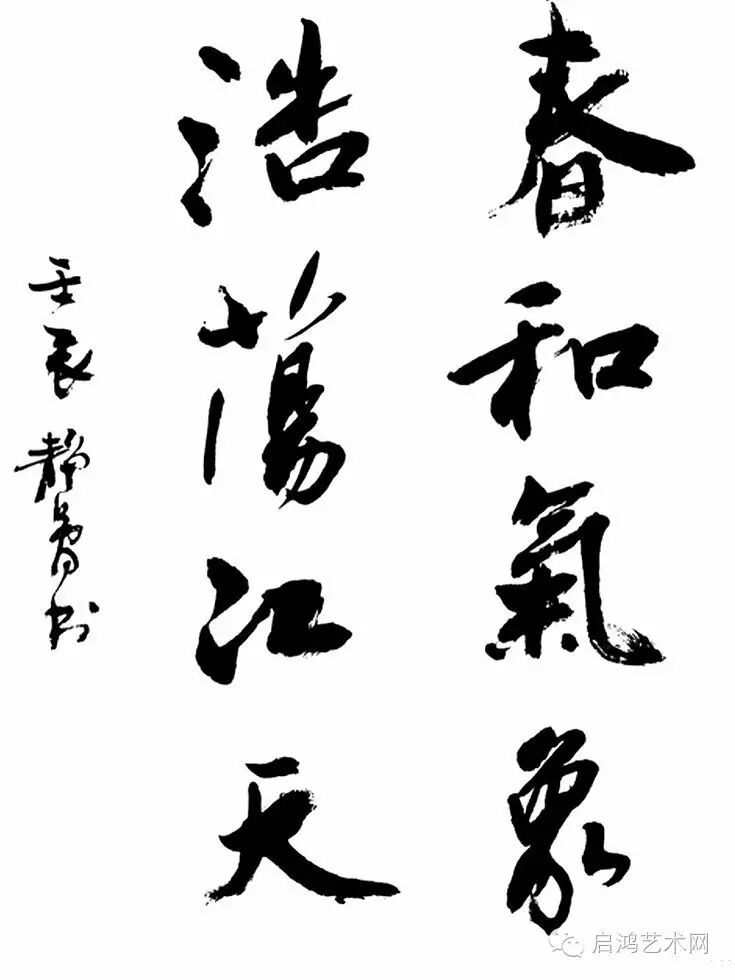 春和氣象
浩蕩江天
壬辰 靜魯书
启鸿艺术网